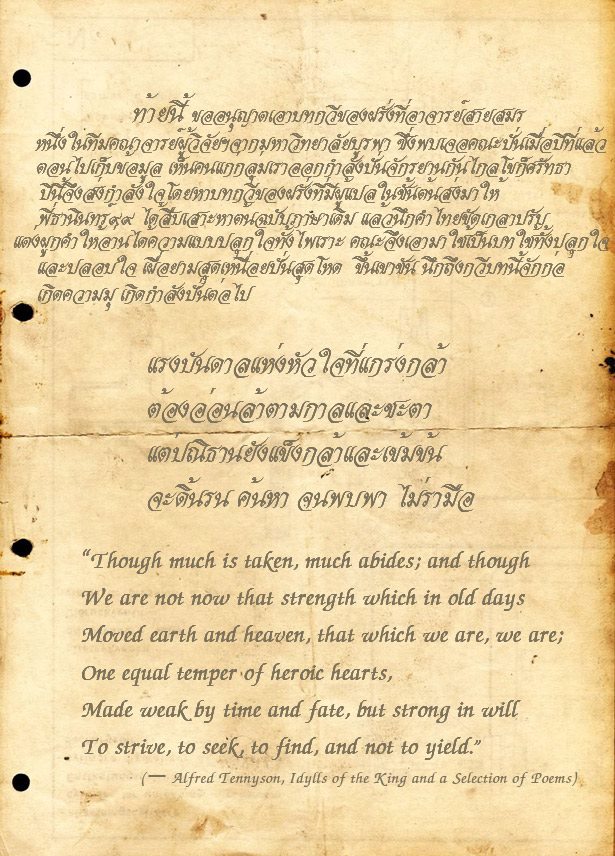 ท้ายนี้ ขออนุญาตเอาบทกวีของฝรั่งที่อาจารย์สายสมร
หนึ่งในทีมคณาจารย์ผู้วิจัยฯจากมหาวิทยาลัยบูรพา ซึ่งพบเจอคณะปั่นเมื่อปีที่แล้ว
ตอนไปเก็บข้อมูล เห็นคนแก่กลุ่มเราออกกำลังปั่นจักรยานกันไกลโขก็ศรัทธา
ปีนี้จึงส่งกำลังใจโดยหาบทกวีของฝรั่งที่มีผู้แปลในชั้นต้นส่งมาให้
พี่ธานินทร์๙๙ ได้สืบเสาะหาต้นฉบับภาษาเดิม แล้วนึกคำไทยขัดเกลาปรับ
แต่งผูกคำให้อ่านได้ความแบบปลุกใจทั้งไพเราะ คณะจึงเอามาใช้เป็นบทใช้ทั้งปลุกใจ
และปลอบใจ เผื่อยามสุดเหนื่อยปั่นสุดโหด ขึ้นเขาชัน นึกถึงกวีบทนี้จักก่อ
เกิดความมุ เกิดกำลังปั่นต่อไป
แรงบันดาลแห่งหัวใจที่แกร่งกล้า
ต้องอ่อนล้าตามกาลและชะตา
แต่ปณิธานยังแข็งกล้าและเข้มข้น
จะดิ้นรน ค้นหา จนพบพา ไม่รามือ
“Though much is taken, much abides; and though
We are not now that strength which in old days
Moved earth and heaven, that which we are, we are;
One equal temper of heroic hearts,
Made weak by time and fate, but strong in will
To strive, to seek, to find, and not to yield.”
(— Alfred Tennyson, Idylls of the King and a Selection of Poems)